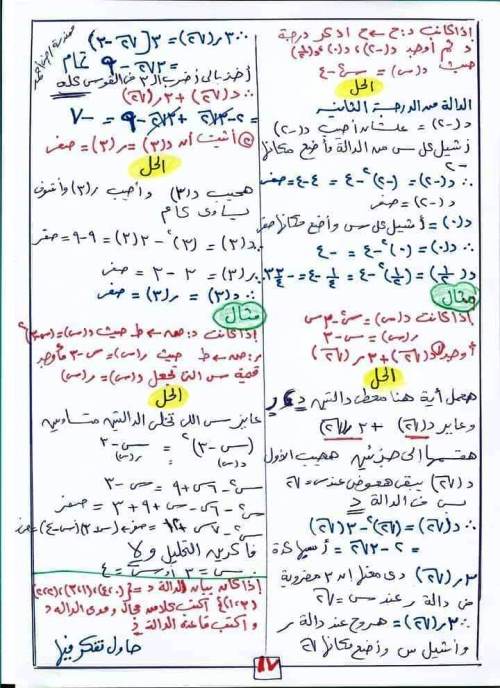 إذا كانت د: ح ← ح اذكر درجة
د ثم أوجد د(-٢)، د(٠)، د(١/٢)
حيث د(س) = س٢ - ٤
الحل
الدالة من الدرجة الثانية
د(-٢) = علشان أجيب د(-٢)
أشيل كل س من الدالة وأضع مكانها
-٢
∴ د(-٢) = (-٢)٢ - ٤ = ٤ - ٤ = صفر
∴ د(-٢) = صفر
د(٠) = أشيل كل س وأضع مكانها صفر
∴ د(٠) = (٠)٢ - ٤ = -٤
د(١/٢) = (١/٢)٢ - ٤ = ١/٤ - ٤ = -٣ ٣/٤
مثال
إذا كانت د(س) = س٢ - ٣س
ر(س) = س - ٣
أوجد ١ د(√٢) + ٣ر(√٢)
الحل
هعمل أية هنا معطى دالتين د، ر
وعايز د(√٢) + ٣ر(√٢)
هقسمها إلى جزئين هجيب الأول
د(√٢) يبقى هعوض عن س = √٢
في الدالة د
∴ د(√٢) = (√٢)٢ - ٣(√٢)
= ٢ - ٣√٢ =
٣ر(√٢) دى معناها ٣ مضروبة
في دالة ر عند س = √٢
∴ ٣ر(√٢) = هروح عند دالة ر
وأشيل س وأضع مكانها √٢
∴ ٣ر(√٢) = ٣[√٢ - ٣]
= ٣√٢ - ٩ تمام
أخذ بالى أضرب الـ٣ في القوس كله
∴ د(√٢) + ٣ر(√٢)
= ٢ - ٣√٢ + ٣√٢ - ٩ = -٧
٢ أثبت أن د(٣) = ر(٣) = صفر
الحل
هجيب د(٣) وأجيب ر(٣) وأشوف
يساوى كام
∴ د(٣) = (٣)٢ - ٣(٣) = ٩ - ٩ = صفر
∴ ر(٣) = ٣ - ٣ = صفر
∴ د(٣) = ر(٣) = صفر
مثال
إذا كانت د: صہ ← ط حيث د(س) = (س-٣)٢
ر: صہ ← ط حيث ر(س) = س - ٣ فأوجد
قيمة س التى تجعل د(س) = ر(س)
الحل
عايز س اللى تخلى الدالتين متساويين
(س - ٣)٢ = س - ٣
د(س) ر(س)
س٢ - ٦س + ٩ = س - ٣
س٢ - ٦س - س + ٩ + ٣ = صفر
س٢ - ٧س + ١٢ = صفر ← (س-٣)(س-٤) = صفر
فاكرين التحليل ولا
∴ س = ٣ أو س = ٤
إذا كان بيان الدالة د =
أكتب كلا من مجال ومدى الدالة د
و اكتب قاعدة الدالة
حاول تفكر فيها
١٧